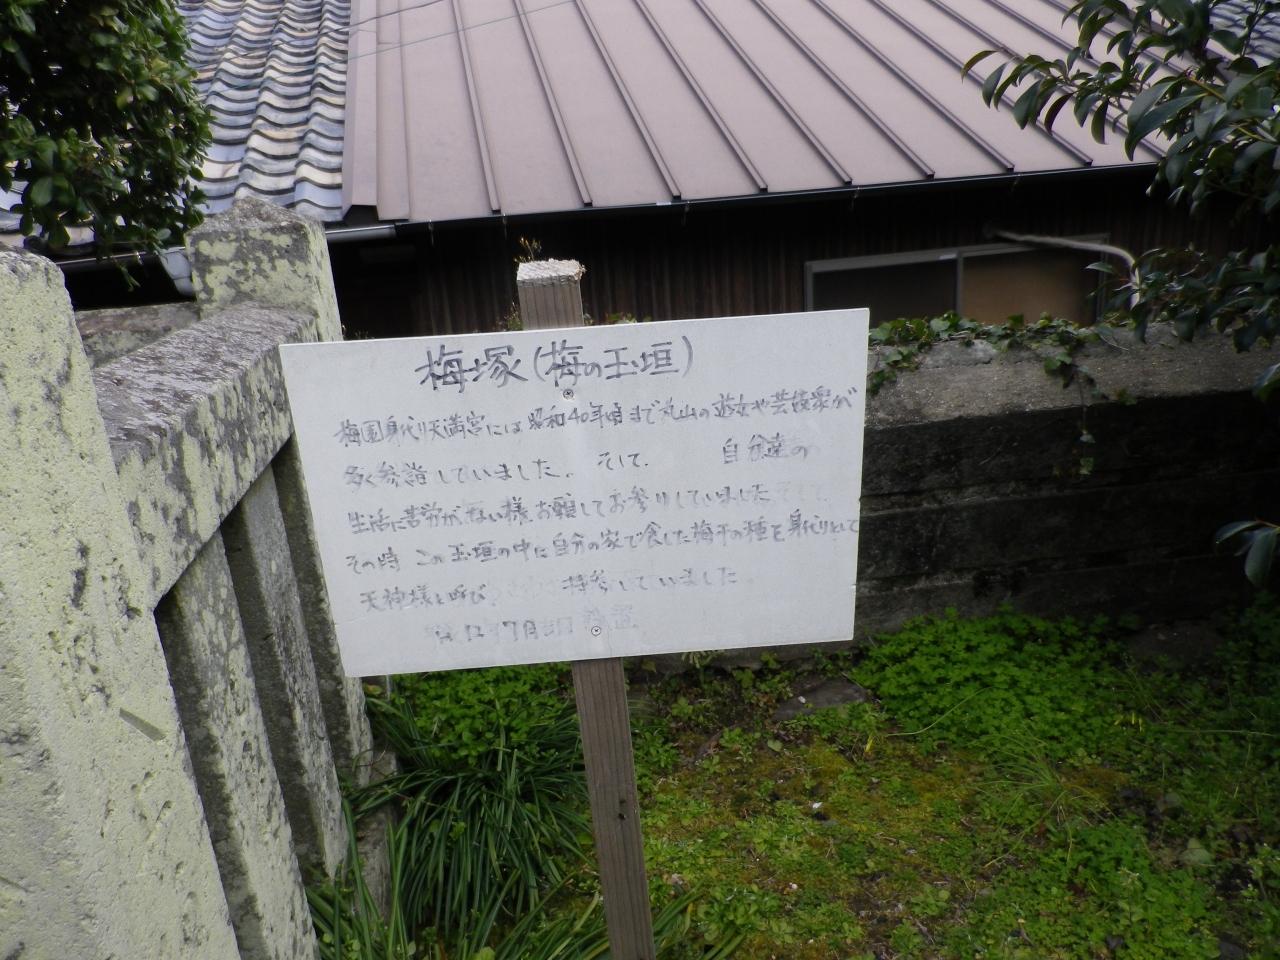 梅塚(梅の玉垣)
梅園身代り天満宮には昭和40年頃まで丸山の遊女や芸妓衆が
多く参詣していました。そして、自分達の
生活に苦労がない様お願してお参りしていました
その時この玉垣の中に自分の家で食した梅干の種を身代りとして
天神様と呼び 持参していました